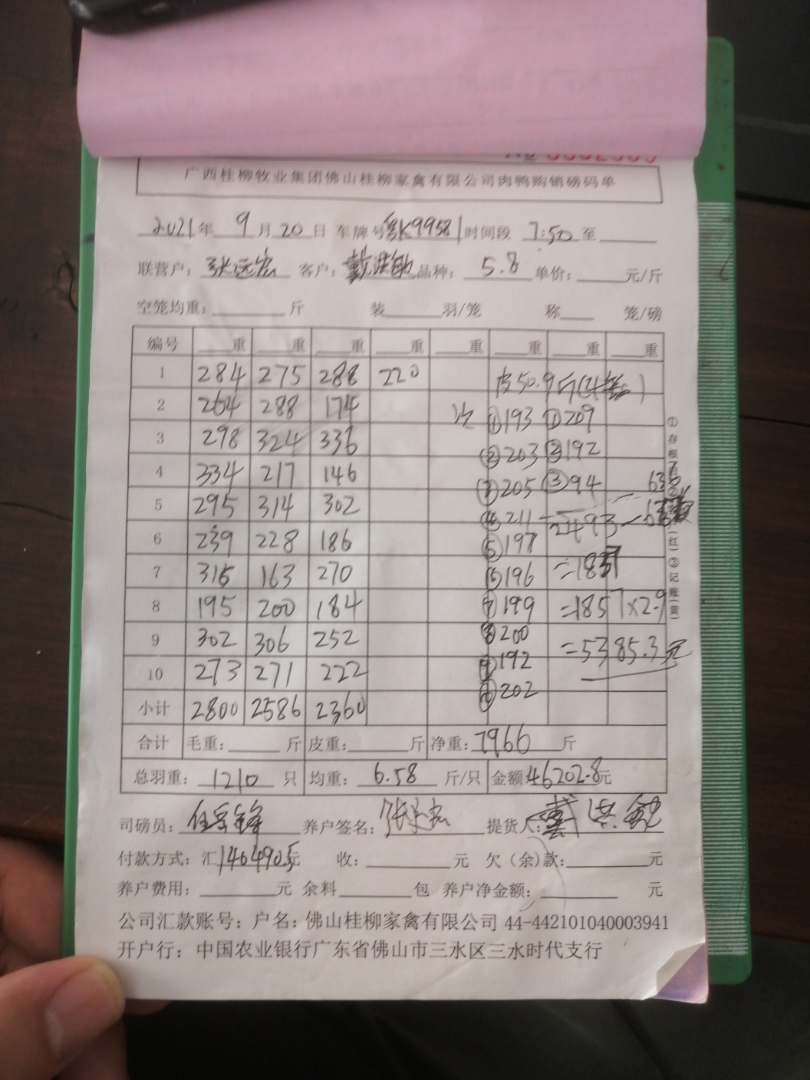 广西桂柳牧业集团佛山桂柳家禽有限公司肉鸭购销磅码单
2021年 9月 20日 车牌号 K9958 时间段 7:50 至
联营户：张远宏 客户：戴洪敏 品种：5.8 单价： 元/斤
空笼均重： 斤 装 羽/笼 称 笼/磅
编号 重 重 重 重 重 重 重 重
1 284 275 288 220 皮50.9斤
2 264 288 174 ①193 ①209
3 298 324 336 ②203 ②192
4 334 217 146 ③205 ③94
5 295 314 302 ④211 2493
6 239 228 186 ⑤197
7 316 163 270 ⑥196 =1857
8 195 200 184 ⑦199 =1857×2.9
9 302 306 252 ⑧200 =5385.3元
10 273 271 222 ⑨192
⑩202
小计 2800 2586 2360
合计 毛重： 斤 皮重： 斤 净重：7966 斤
总羽重：1210 只 均重：6.58 斤/只 金额46202.8元
司磅员： 养户签名：张远宏 提货人：戴洪敏
付款方式：汇 140490.5元 收： 元 欠（余）款： 元
养户费用： 元 余料 包 养户净金额： 元
公司汇款账号：户名：佛山桂柳家禽有限公司 44-442101040003941
开户行：中国农业银行广东省佛山市三水区三水时代支行
①存根
（红）③记账（黄）